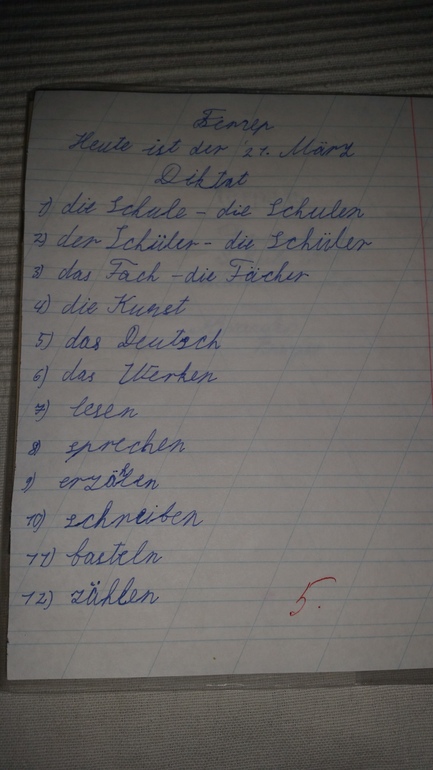 Heute ist der 21. März
Diktat
1) die Schule - die Schulen
2) der Schüler - die Schüler
3) das Fach - die Fächer
4) die Kunst
5) das Deutsch
6) das Werken
7) lesen
8) sprechen
9) erzählen
10) schreiben
11) basteln
12) zählen
5.